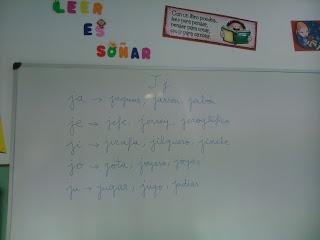 LEER
ES
SOÑAR
Con un libro puedes...
J j
ja → jaguar, jarrón, jabón
je → jefe, jersey, jeroglífico
ji → jirafa, jilguero, jinete
jo → jota, joyero, joyas
ju → jugar, jugo, judías